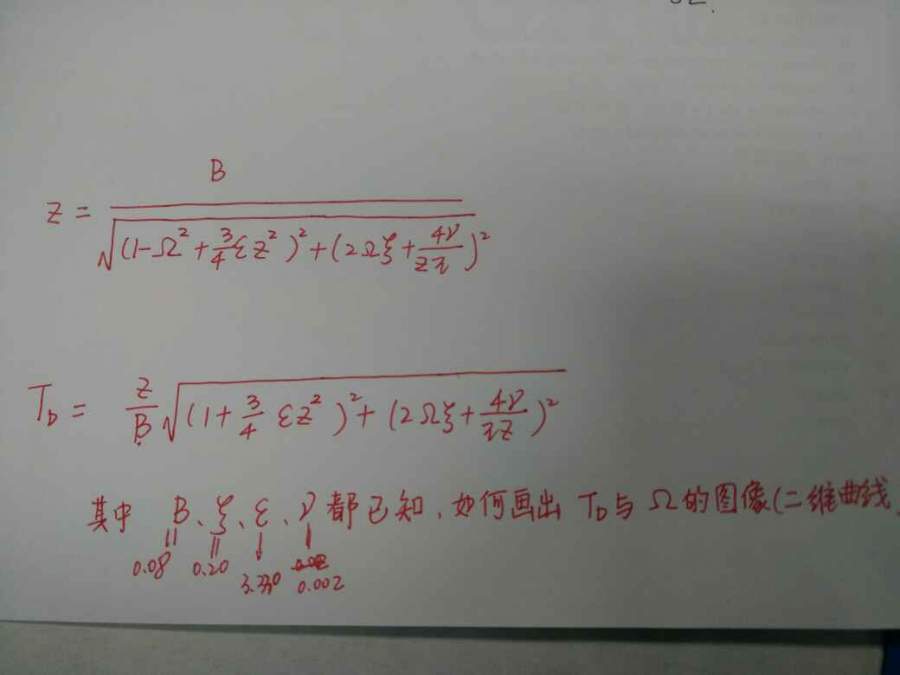 B
z = √(1-Ω²+3/4 εz²)²+(2Ωξ+4ν/zπ)²
T_D = z/B √(1+3/4 εz²)²+(2Ωξ+4ν/πz)²
其中 B、ξ、ε、ν 都已知、如何画出 T_D与 Ω的图像(二维曲线
0.08 0.20 3.330 0.002